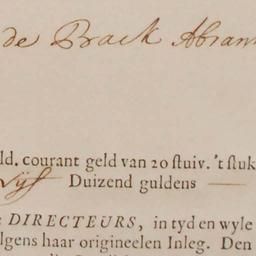 de Brack Abram
ld. courant geld van 20 stuiv. 't stuk
Vijf Duizend guldens
: DIRECTEURS, in tyd en wyle
lgens haar origineelen Inleg. Den